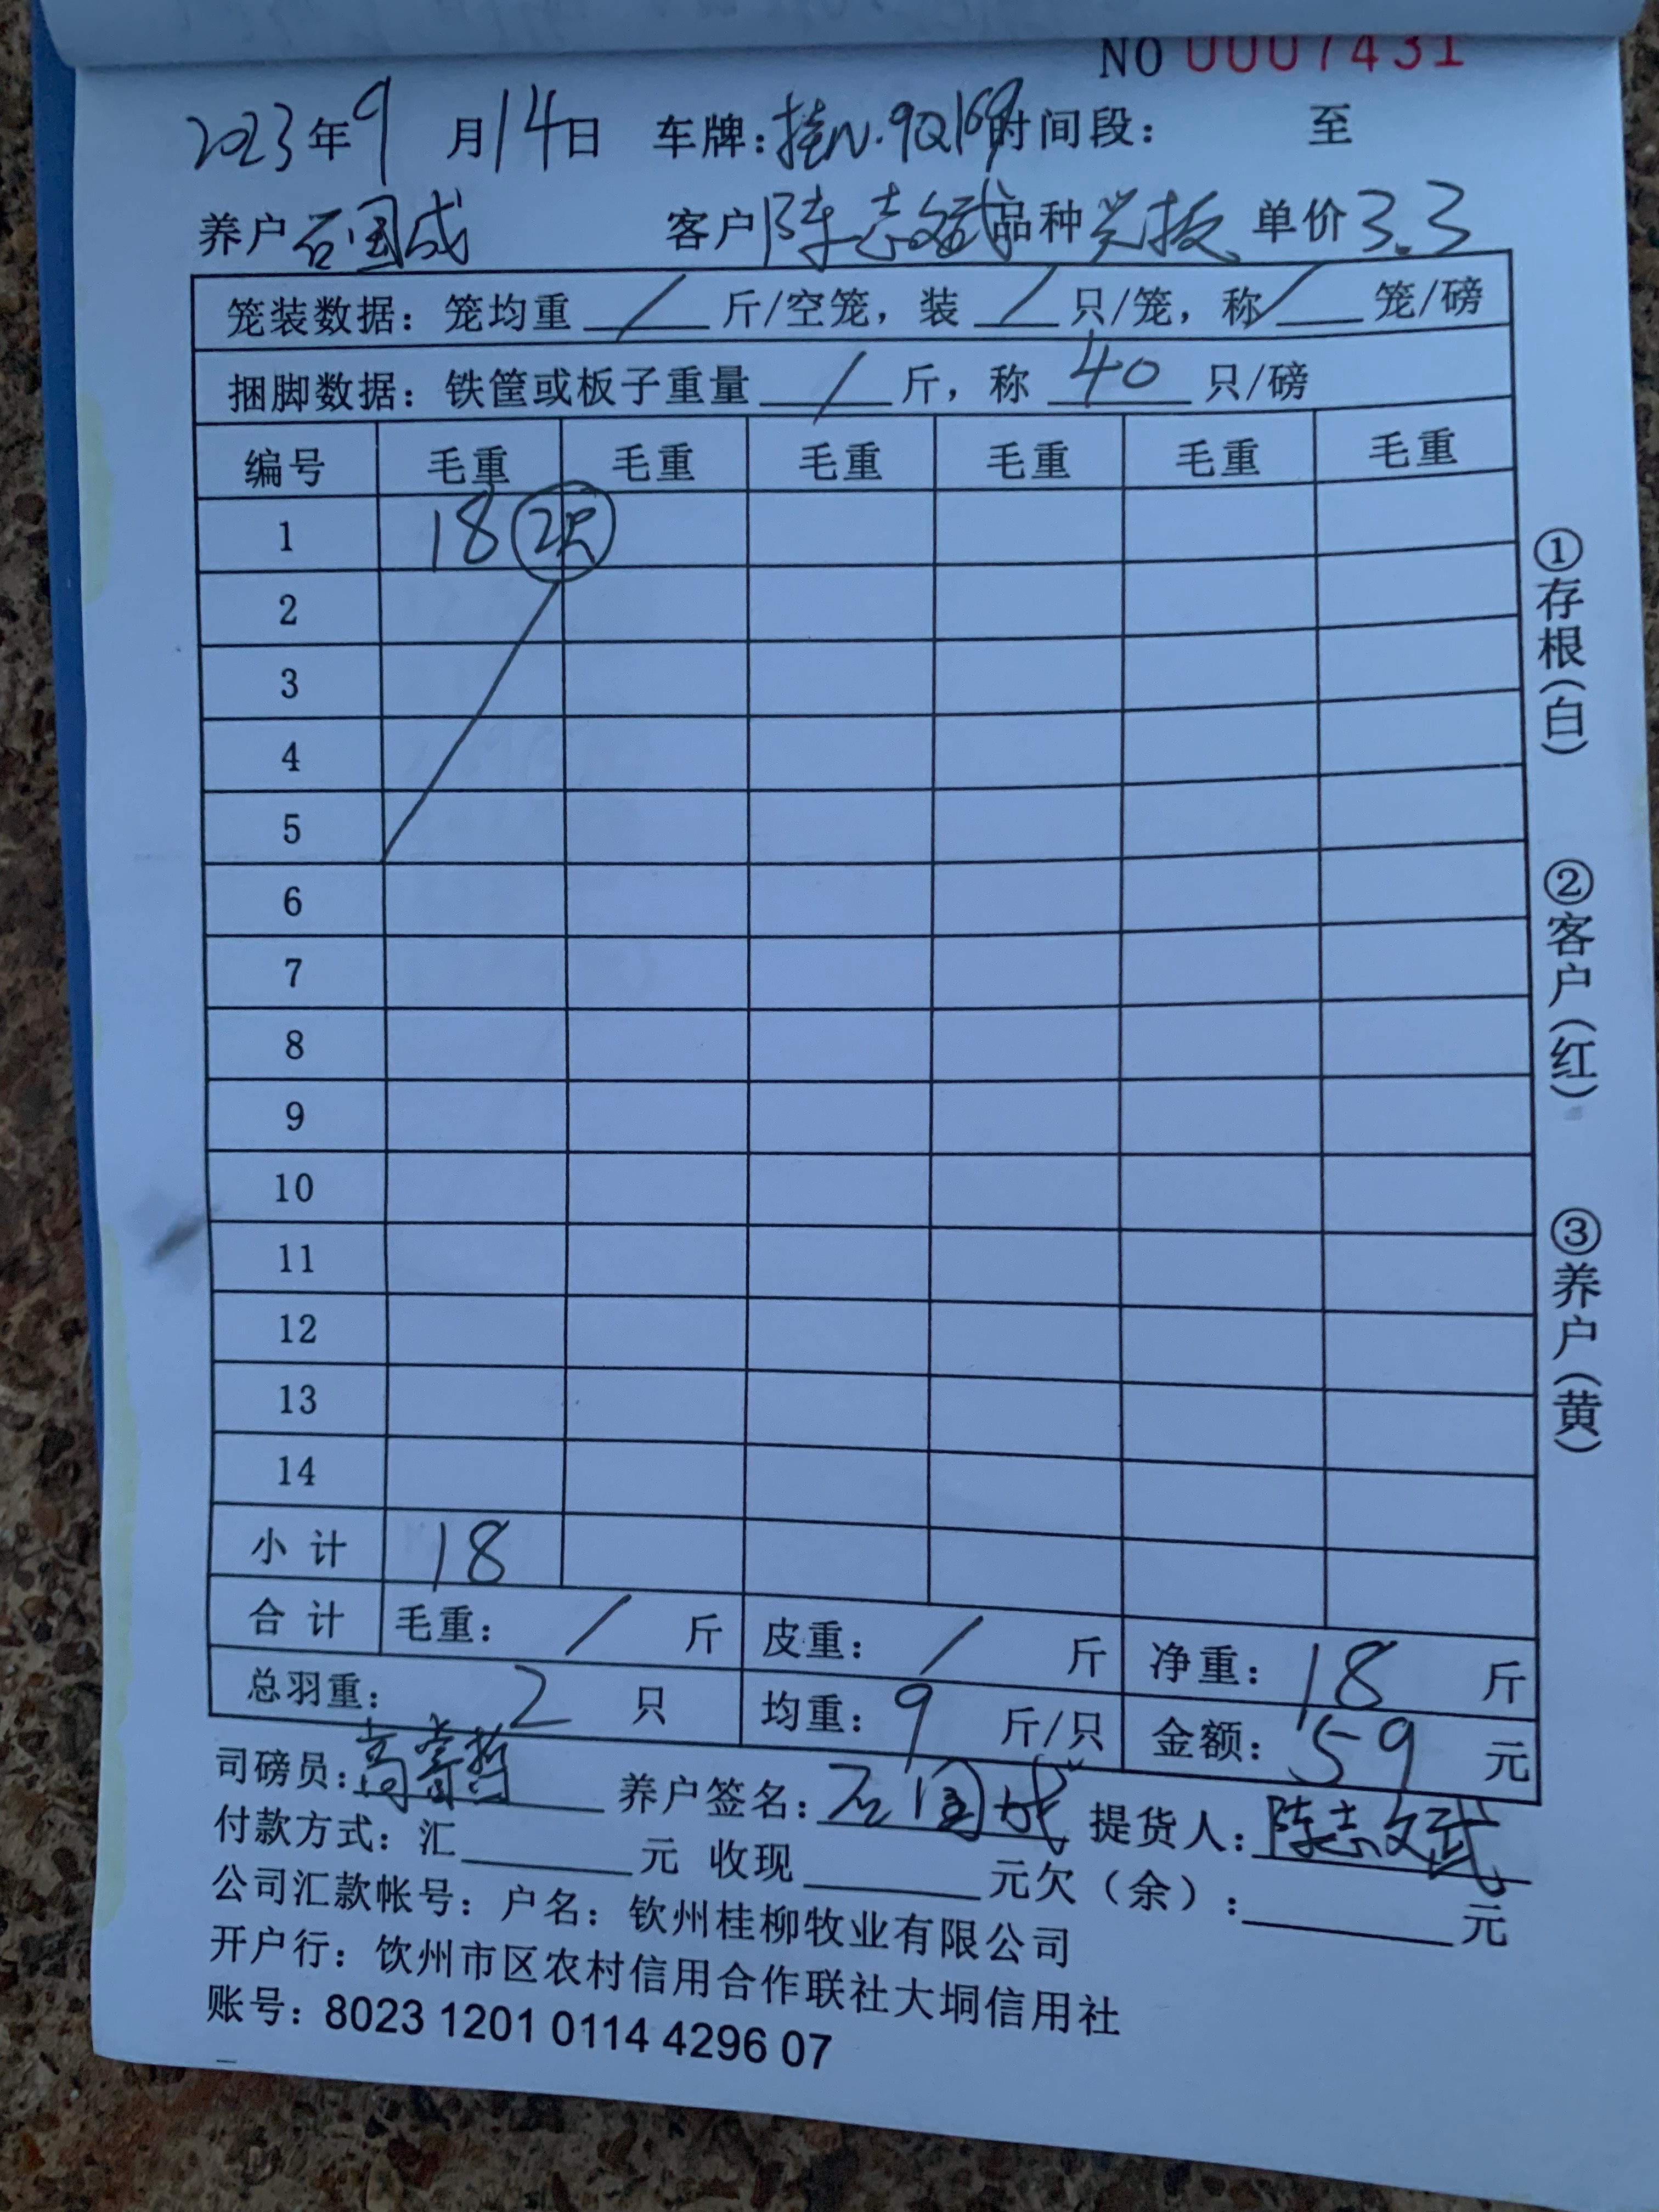 NO 0007431
2023年9月14日 车牌:桂N.9Q169时间段: 至
养户 石国成 客户 陈志斌 品种 单价 3.3
笼装数据: 笼均重 / 斤/空笼, 装 / 只/笼, 称 / 笼/磅
捆脚数据: 铁筐或板子重量 / 斤, 称 40 只/磅
编号 毛重 毛重 毛重 毛重 毛重 毛重
1 18 2只
2
3
4
5
6
7
8
9
10
11
12
13
14
小计 18
合计 毛重: / 斤 皮重: / 斤 净重: 18 斤
总羽重: 2 只 均重: 9 斤/只 金额: 59 元
司磅员: 养户签名: 石国成 提货人: 陈志斌
付款方式: 汇 元 收现 元欠(余): 元
公司汇款帐号: 户名: 钦州桂柳牧业有限公司
开户行: 钦州市区农村信用合作联社大垌信用社
账号: 8023 1201 0114 4296 07
①存根(白)
②客户(红)
③养户(黄)